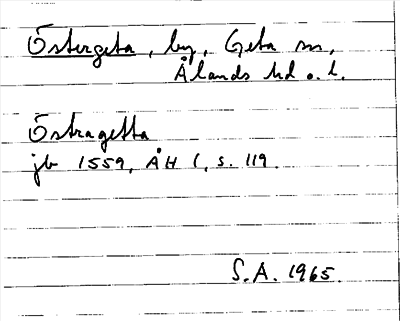 Östergeta, by, Geta sn,
Ålands hd o. l.
Östragetta
jb 1559, ÅH 1, s. 119.
S.A. 1965.